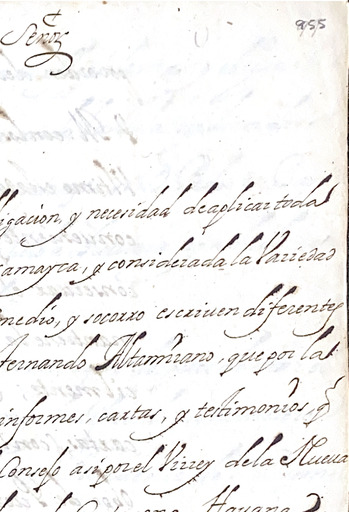 955
Señor
ligacion, y necesidad de aplicar toda
iamayca, y considerada la Variedad
medio, y socorro escriuen diferentes
fernando Altamirano, que por la
informes, cartas, y testimonios, q
Consejo asi por el Virrey de la Nueua
Hauana